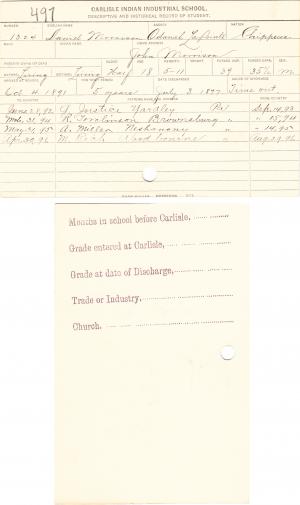 491
CARLISLE INDIAN INDUSTRIAL SCHOOL.
DESCRIPTIVE AND HISTORICAL RECORD OF STUDENT.
NUMBER ENGLISH NAME AGENCY NATION
1304 Daniel Morrison Odanah, La Pointe Chippewa
INDIAN NAME HOME ADDRESS
John Morrison
Living Living Half 18 5-11 39 35½ M
Oct 4, 1891 5 years July 3, 1897 Time out
June 28, 92 Justice Yardley Pa Sep. 14, 93
Mch. 31, 94 R. Tomlinson Brownsburg " " 15, 94
May 31, 95 A. Neshaminy " " 14, 95
Apr. 30, 96 M. " Aug 29, 96
Months in school before Carlisle, ..............
Grade entered at Carlisle, ..............
Grade at date of Discharge, ..............
Trade or Industry, ..............
Church. ..............